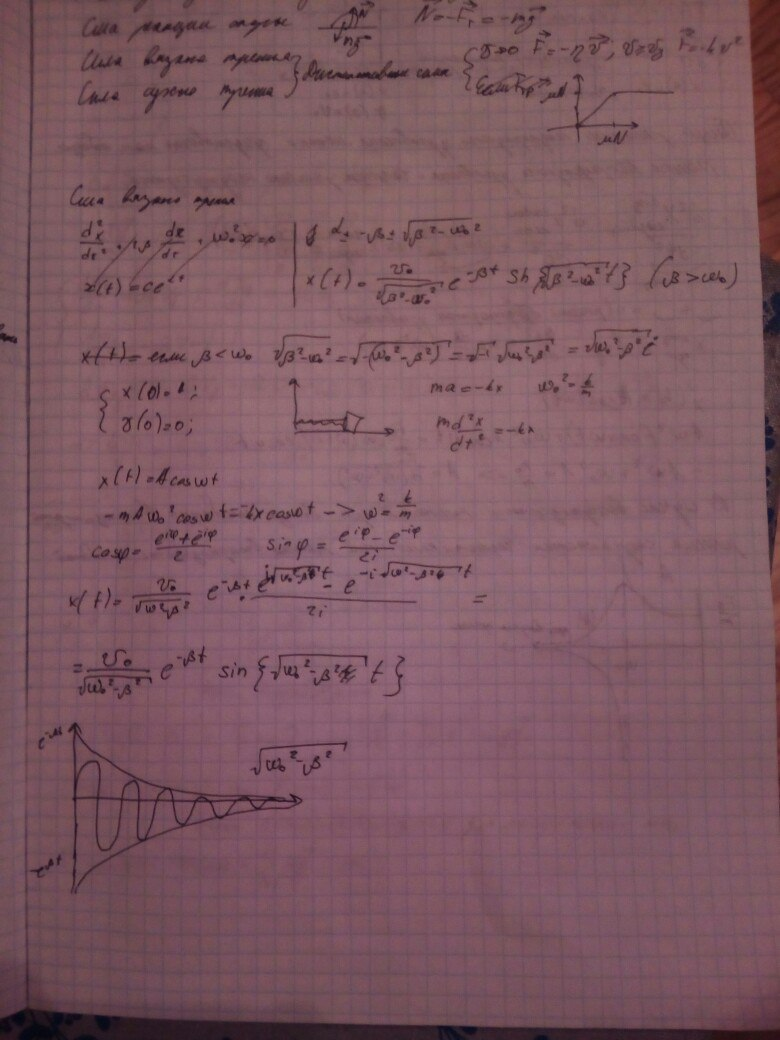 Сила реакции опоры N⃗ mg⃗ N⃗=-F⃗₁=-mg⃗
Сила вязкого трения } Диссипативные силы { v→0 F⃗=-ηv⃗, F=-kv²
Сила сухого трения μN μN
Сила вязкого трения
d²x/dt² + 2β dx/dt + ω₀²x=0 | α± = -β±√(β²-ω₀²)
x(t)=ce^αt | x(t)= v₀/√(β²-ω₀²) e^-βt sh{√(β²-ω₀²) t} (β>ω₀)
x(t)= если β<ω₀ √(β²-ω₀²)=√(-(ω₀²-β²))=√-1 √(ω₀²-β²) = √(ω₀²-β²) i
{ x(0)=A; ma=-kx ω₀²=k/m
v(0)=0; m d²x/dt² =-kx
x(t)=A cosωt
-mAω₀² cosωt=-kx cosωt -> ω²=k/m
cosφ= (e^iφ+e^-iφ)/2 sinφ= (e^iφ-e^-iφ)/2i
x(t)= v₀/√(ω²-β²) e^-βt · (e^i√(ω₀²-β²)t - e^-i√(ω²-β²)t)/2i =
= v₀/√(ω₀²-β²) e^-βt sin{√(ω₀²-β²) t}
e^-βt √(ω₀²-β²)
-e^-βt